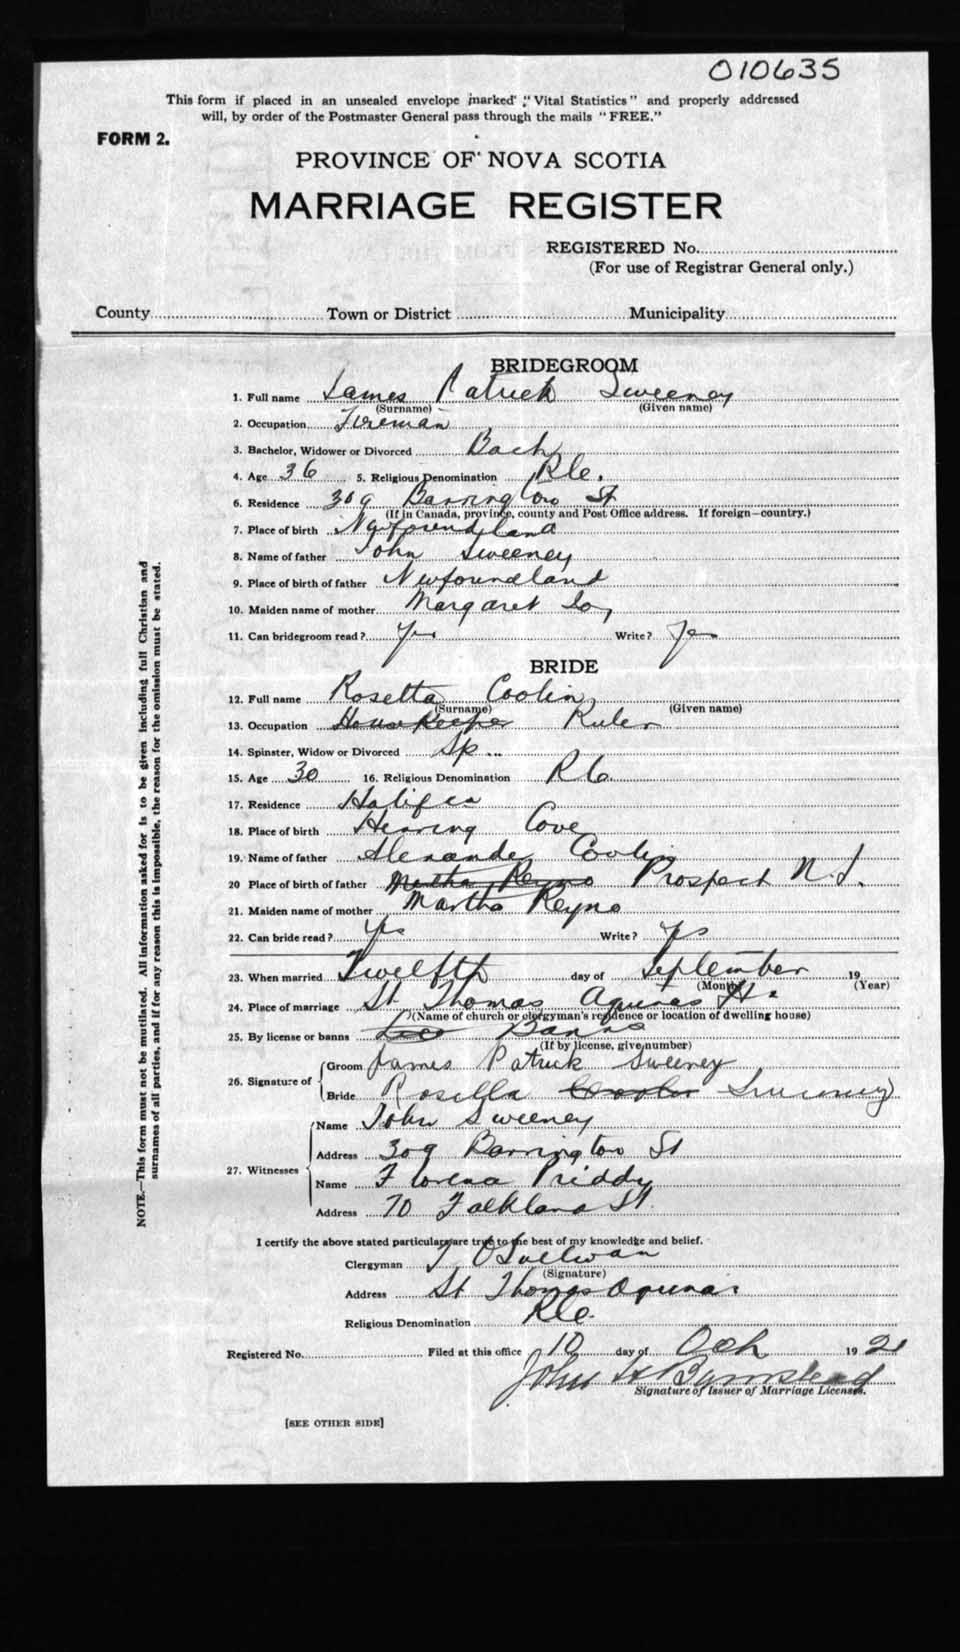 010635
This form if placed in an unsealed envelope marked "Vital Statistics" and properly addressed
will, by order of the Postmaster General pass through the mails "FREE."
FORM 2.
PROVINCE OF NOVA SCOTIA
MARRIAGE REGISTER
REGISTERED No.
(For use of Registrar General only.)
County Town or District Municipality
BRIDEGROOM
1. Full name James Patrick Sweeney
(Surname) (Given name)
2. Occupation Fireman
3. Bachelor, Widower or Divorced Bach
4. Age 36 5. Religious Denomination R.C.
6. Residence 309 Barrington St
(If in Canada, province, county and Post Office address. If foreign—country.)
7. Place of birth Newfoundland
8. Name of father John Sweeney
9. Place of birth of father Newfoundland
10. Maiden name of mother Margaret
11. Can bridegroom read? Yes Write? Yes
BRIDE
12. Full name Rosella Coolin
(Surname) (Given name)
13. Occupation House Keeper Ruler
14. Spinster, Widow or Divorced Sp...
15. Age 30 16. Religious Denomination R C
17. Residence Halifax
18. Place of birth Herring Cove
19. Name of father Alexander Coolin
20 Place of birth of father Martha Reyno Prospect N.S.
21. Maiden name of mother Martha Reyno
22. Can bride read? Yes Write? Yes
23. When married Twelfth day of September 19
(Month) (Year)
24. Place of marriage St Thomas Aquinas Hx
(Name of church or clergyman's residence or location of dwelling house)
25. By license or banns Banns
(If by license, give number)
26. Signature of Groom James Patrick Sweeney
Bride Rosella Coolin Sweeney
27. Witnesses
Name John Sweeney
Address 309 Barrington St
Name Florena Priddy
Address 70 Falkland St.
I certify the above stated particulars are true to the best of my knowledge and belief.
Clergyman T O'Sullivan
(Signature)
Address St Thomas Aquinas
Religious Denomination R.C.
Registered No. Filed at this office 10 day of Och 192
John H Barnstead
Signature of Issuer of Marriage Licenses.
[SEE OTHER SIDE]
NOTE.—This form must not be mutilated. All information asked for is to be given including full Christian and
surnames of all parties, and if for any reason this is impossible, the reason for the omission must be stated.